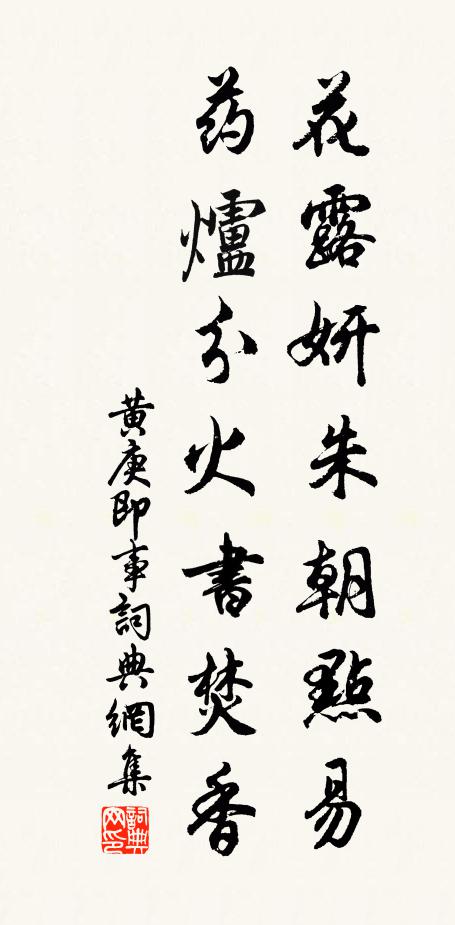 花露妍朱朝點易
药爐分火書焚香
黄庚即事詞典網集
詞典网印